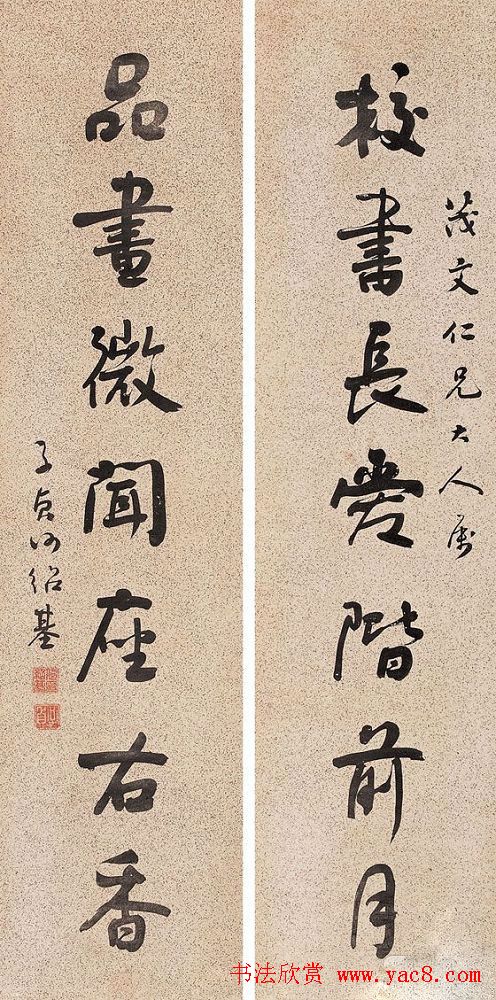 茂文仁兄大人属
校書長愛階前月
品畫微聞座右香
子貞何紹基
书法欣赏 www.yac8.com